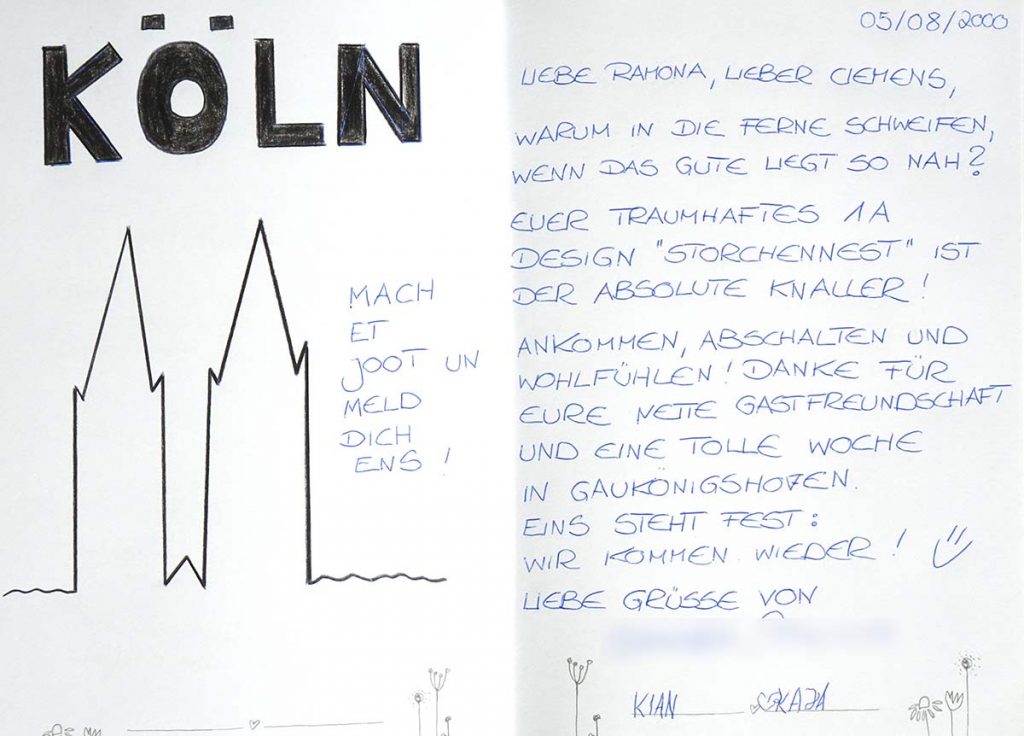 KÖLN
MACH
ET
JOOT UN
MELD
DICH
ENS!
05/08/2000
LIEBE RAMONA, LIEBER CLEMENS,
WARUM IN DIE FERNE SCHWEIFEN,
WENN DAS GUTE LIEGT SO NAH?
EUER TRAUMHAFTES 1A
DESIGN "STORCHENNEST" IST
DER ABSOLUTE KNALLER!
ANKOMMEN, ABSCHALTEN UND
WOHLFÜHLEN! DANKE FÜR
EURE NETTE GASTFREUNDSCHAFT
UND EINE TOLLE WOCHE
IN GAUKÖNIGSHOFEN.
EINS STEHT FEST:
WIR KOMMEN WIEDER!
LIEBE GRÜSSE VON
KIAN KAJA